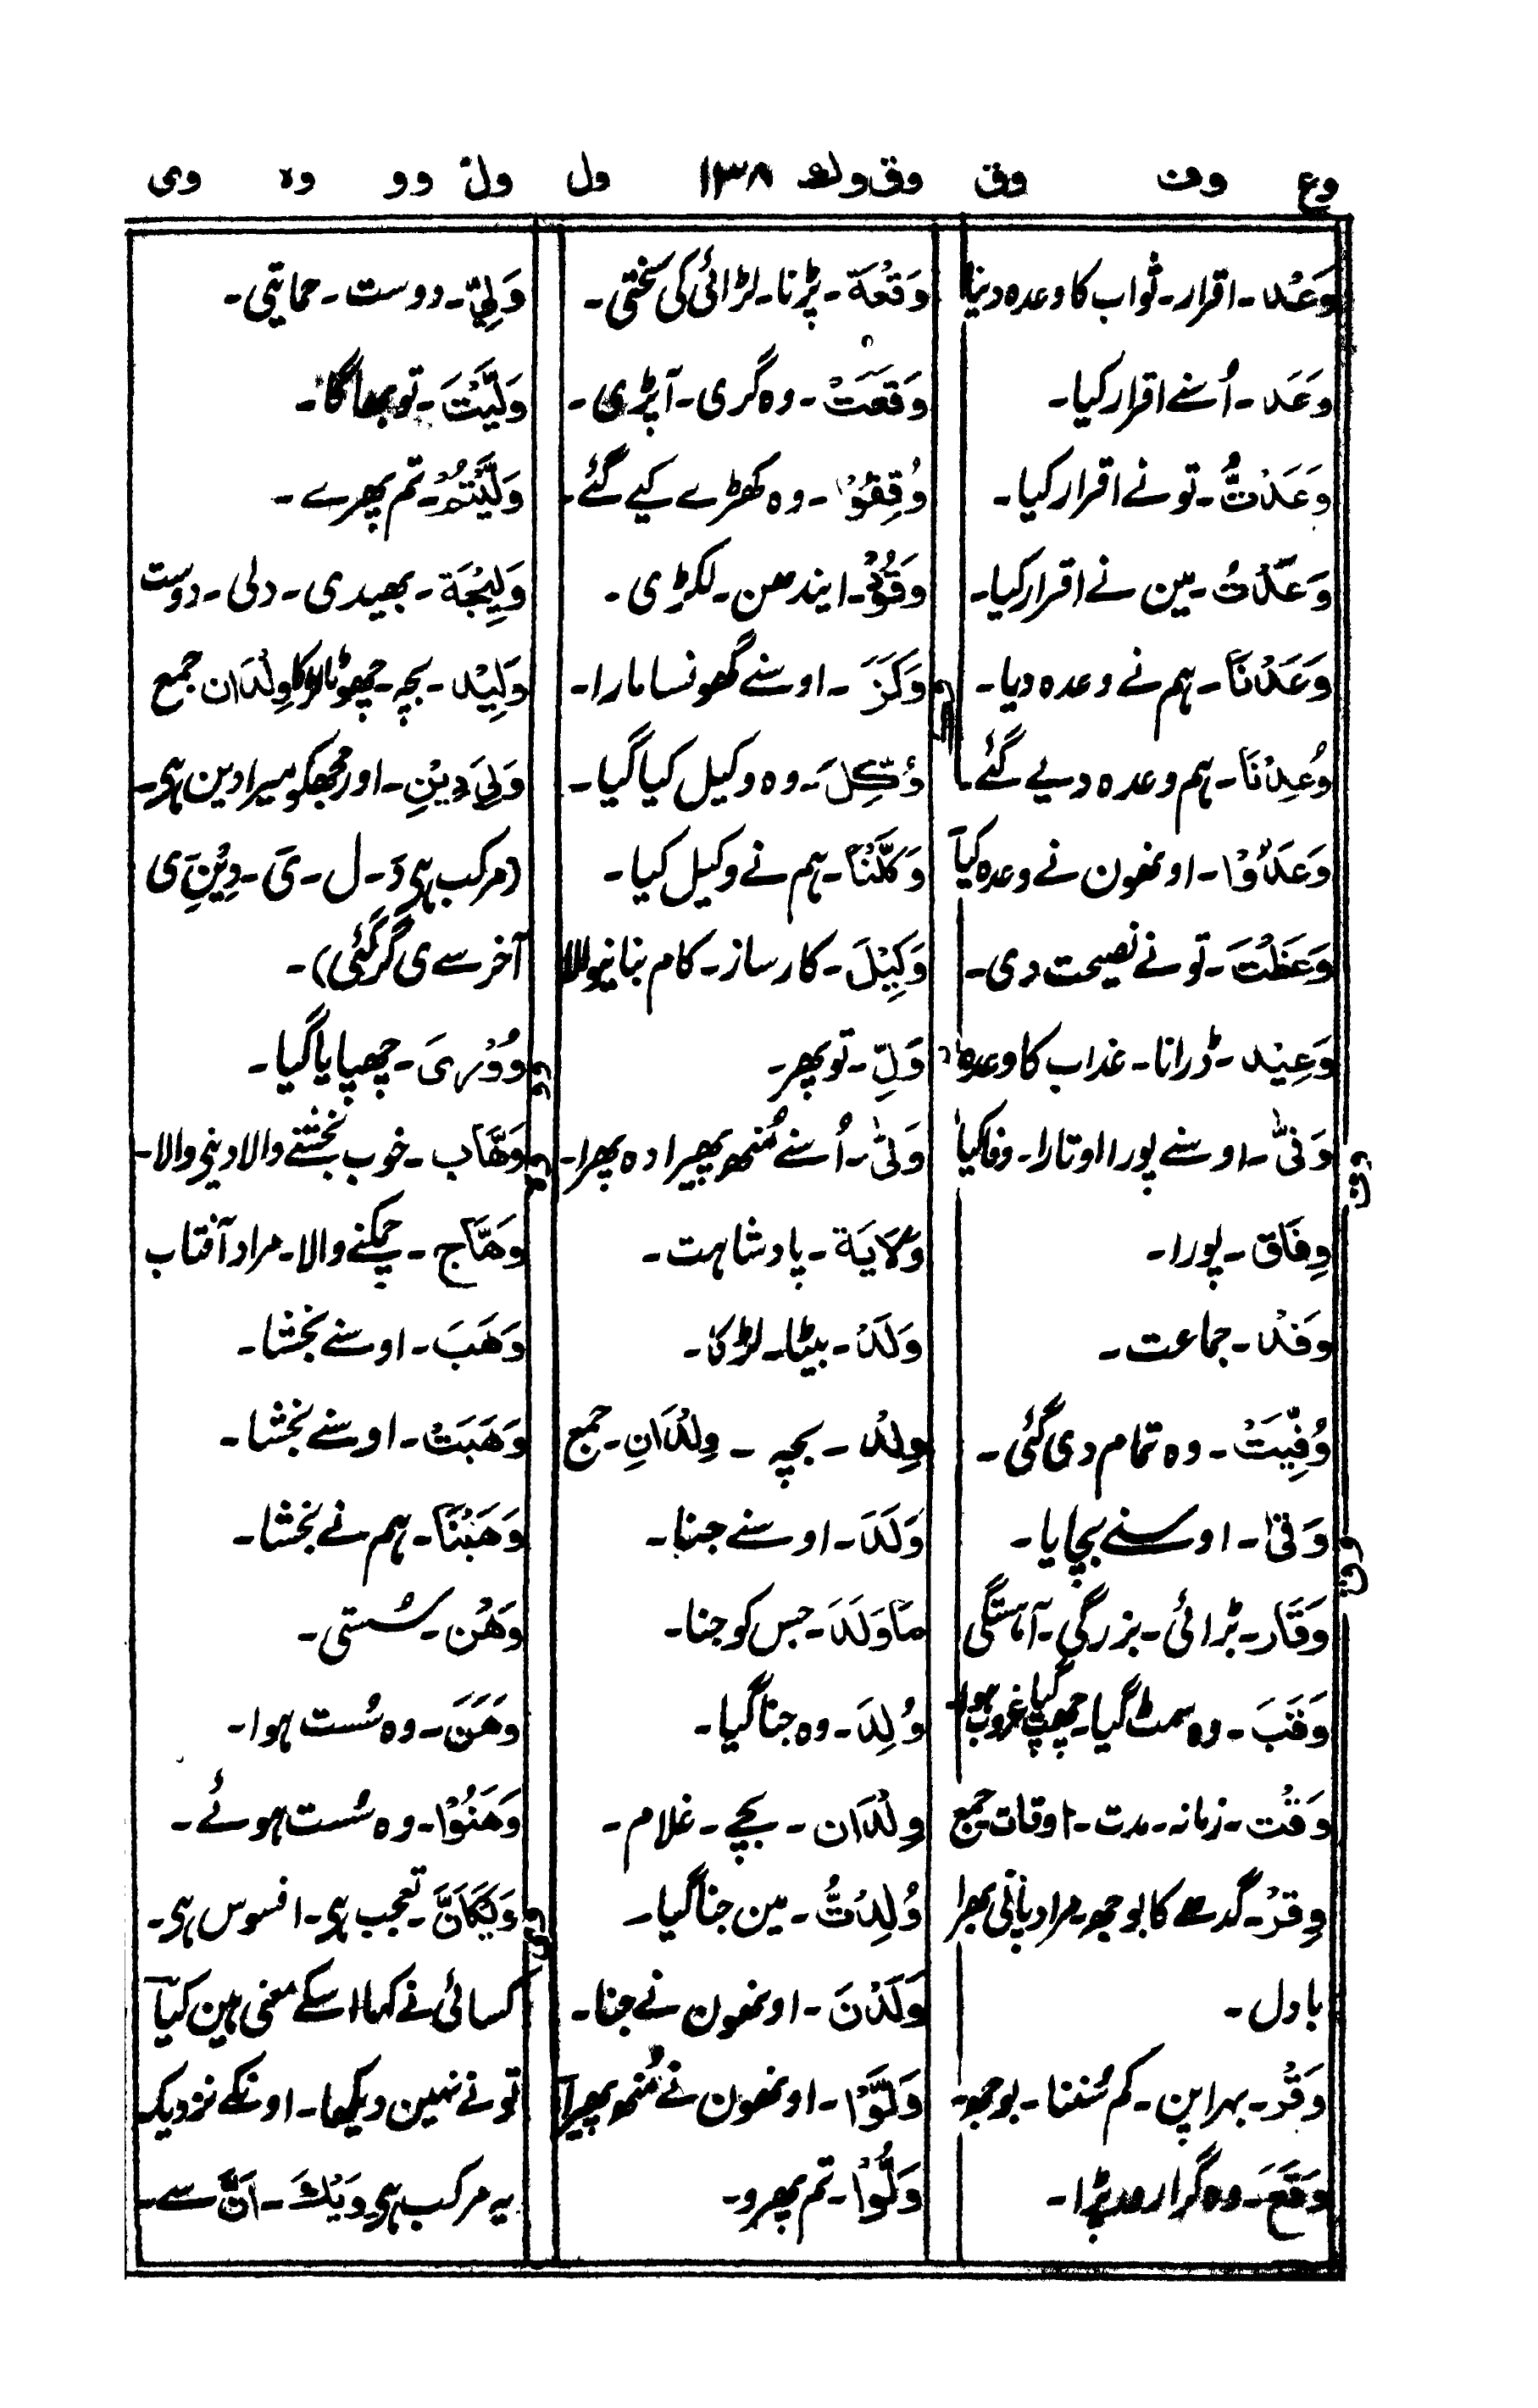 وع وف وق وق وک ١٣٨ ول ول وو وہ وی
وَعْد۔ اقرار۔ ثواب کا وعدہ دینا
وَعَدَ۔ اُسنے اقرار کیا۔
وَعَدْتَّ۔ تو نے اقرار کیا۔
وَعَدْتُّ۔ مین نے اقرار کیا۔
وَعَدْنَا۔ ہم نے وعدہ دیا۔
وُعِدْنَا۔ ہم وعدہ دیے گئے۔
وَعَدُوْا۔ اونھون نے وعدہ کیا
وَعَظْتَ۔ تو نے نصیحت دی۔
وَعِيْد۔ ڈرانا۔ عذاب کا وعدہ
وف
وَفّٰى۔ اوسنے پورا اوتارا۔ وفا کیا
وِفَاق۔ پورا۔
وَفْد۔ جماعت۔
وُفِّيَتْ۔ وہ تمام دی گئی۔
وق
وَقٰى۔ اوسنے بچایا۔
وَقَار۔ بڑائی۔ بزرگی۔ آہستگی
وَقَبَ۔ وہ سمٹ گیا۔ چھپ گیا غروب ہوا۔
وَقْت۔ زمانہ۔ مدت۔ اوقات جمع
وِقْر۔ گدھے کا بوجھ۔ مراد پانی بھرا
بادل۔
وَقْر۔ بہراپن۔ کم سُننا۔ بوجھ۔
وَقَعَ۔ وہ گرا۔ وہ پڑا۔
وَقْعَة۔ پڑنا۔ لڑائی کی سختی۔
وَقَعَتْ۔ وہ گری۔ آپڑی۔
وُقِفُوْا۔ وہ کھڑے کیے گئے۔
وَقُوْد۔ ایندھن۔ لکڑی۔
وَكَزَ۔ اوسنے گھونسا مارا۔
وُكِّلَ۔ وہ وکیل کیا گیا۔
وَكَّلْنَا۔ ہم نے وکیل کیا۔
وَكِيْل۔ کارساز۔ کام بنانیوالا
وَلِّ۔ تو پھر۔
وَلّٰى۔ اُسنے مُنھ پھیرا وہ پھرا۔
وَلَايَة۔ پادشاہت۔
وَلَد۔ بیٹا۔ لڑکا۔
وِلْد۔ بچہ۔ وِلْدَانِ۔ جمع
وَلَدَ۔ اوسنے جنا۔
مَا وَلَدَ۔ جس کو جنا۔
وُلِدَ۔ وہ جنا گیا۔
وِلْدَان۔ بچے۔ غلام۔
وُلِدْتُّ۔ مین جنا گیا۔
وَلَدْنَ۔ اونھون نے جنا۔
وَلَّوْا۔ اونھون نے مُنھ پھیرا
وَلُّوْا۔ تم پھرو۔
وَلِيّ۔ دوست۔ حمایتی۔
وَلَّيْتَ۔ تو بھاگا۔
وَلَّيْتُمْ۔ تم پھرے۔
وَلِيْجَة۔ بھیدی۔ دلی۔ دوست
وَلِيْد۔ بچہ۔ چھوٹا لڑکا وِلْدَان جمع
وَلِيَ دِيْنِ۔ اور مجھکو میرا دین ہی۔
(مرکب ہی وَ۔ ل۔ یَ۔ دِیْنِ ی
آخر سے ی گر گئی)۔
وو
وُوْرِيَ۔ چھپایا گیا۔
وہ
وَهَّاب۔ خوب بخشنے والا دینی والا۔
وَهَّاج۔ چمکنے والا۔ مراد آفتاب
وَهَبَ۔ اوسنے بخشا۔
وَهَبَتْ۔ اوسنے بخشا۔
وَهَبْنَا۔ ہم نے بخشا۔
وَهْن۔ سُستی۔
وَهَنَ۔ وہ سُست ہوا۔
وَهَنُوْا۔ وہ سُست ہوئے۔
وی
وَيْكَاَنَّ۔ تعجب ہی۔ افسوس ہی۔
کسائی نے کہا اسکے معنی ہین کیا
تو نے نہین دیکھا۔ اونکے نزدیک
یہ مرکب ہی وَيْكَ۔ اَنَّ سے۔